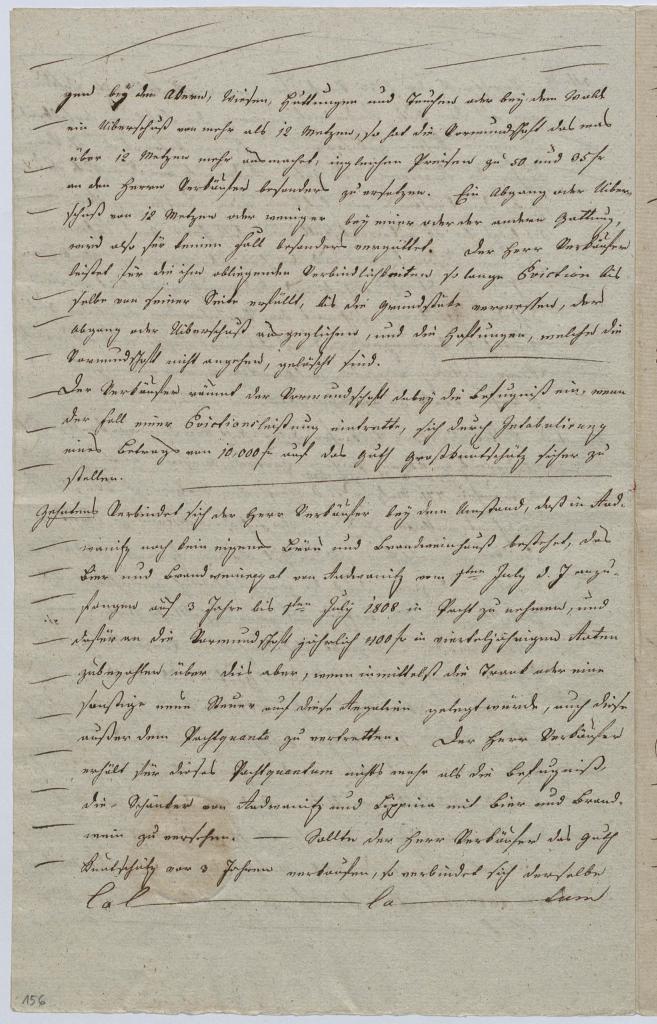 gen bey den Äkern, Wiesen, Huttungen und Teuchen oder bey dem Wald
ein Uiberschuß von mehr als 12 Metzen, so hat die Vormundschaft das was
über 12 Metzen mehr ausmachet, ingleichen Preisen zu 50 und 35 fr
an den Herrn Verkäufer besonders zu ersetzen. Ein Abgang oder Uiber-
schuß von 12 Metzen oder weniger bey einer oder der andern Gattung,
wird also für keinen Fall besonders vergüttet. Der Herr Verkäufer
leistet für die ihm obliegenden Verbindlichkeiten so lange Eviction bis
selbe von seiner Seite erfüllt, bis die Grundstüke vermessen, der
Abgang oder Uiberschuß ausgeglichen, und die Haftungen, welche die
Vormundschaft nicht angehen, gelöscht sind.
Der Verkäufer räumt der Vormundschaft dabey die Befugniß ein, wenn
der Fall einer Evictionsleistung eintrette, sich durch Intabulirung
eines Betrags von 10,000 fr auf das Guth Großkuntschitz sicher zu
stellen.
Zehntens Verbindet sich der Herr Verkäufer bey dem Umstand, daß in Rad-
wanitz noch kein eigenes Bräu und Brandweinhauß bestehet, das
Bier und Brandweinregal von Radwanitz vom 1ten July d. J anzu-
fangen auf 3 Jahre bis 1ten July 1808 in Pacht zu nehmen, und
dafür an die Vormundschaft jährlich 400 fr in vierteljährigen Raten
zubezahlen über dies aber, wenn inmittelst die Trank oder eine
sonstige neue Steuer auf diese Regalien gelegt würde, auch diese
außer dem Pachtquanto zu vertretten. Der Herr Verkäufer
erhält für dieses Pachtquantum nichts mehr als die Befugniß,
die Schänker von Radwanitz und Lippina mit Bier und Brand-
wein zu versehen. — Sollte der Herr Verkäufer das Guth
Kuntschitz vor 3 Jahren verkaufen, so verbindet sich derselbe
156